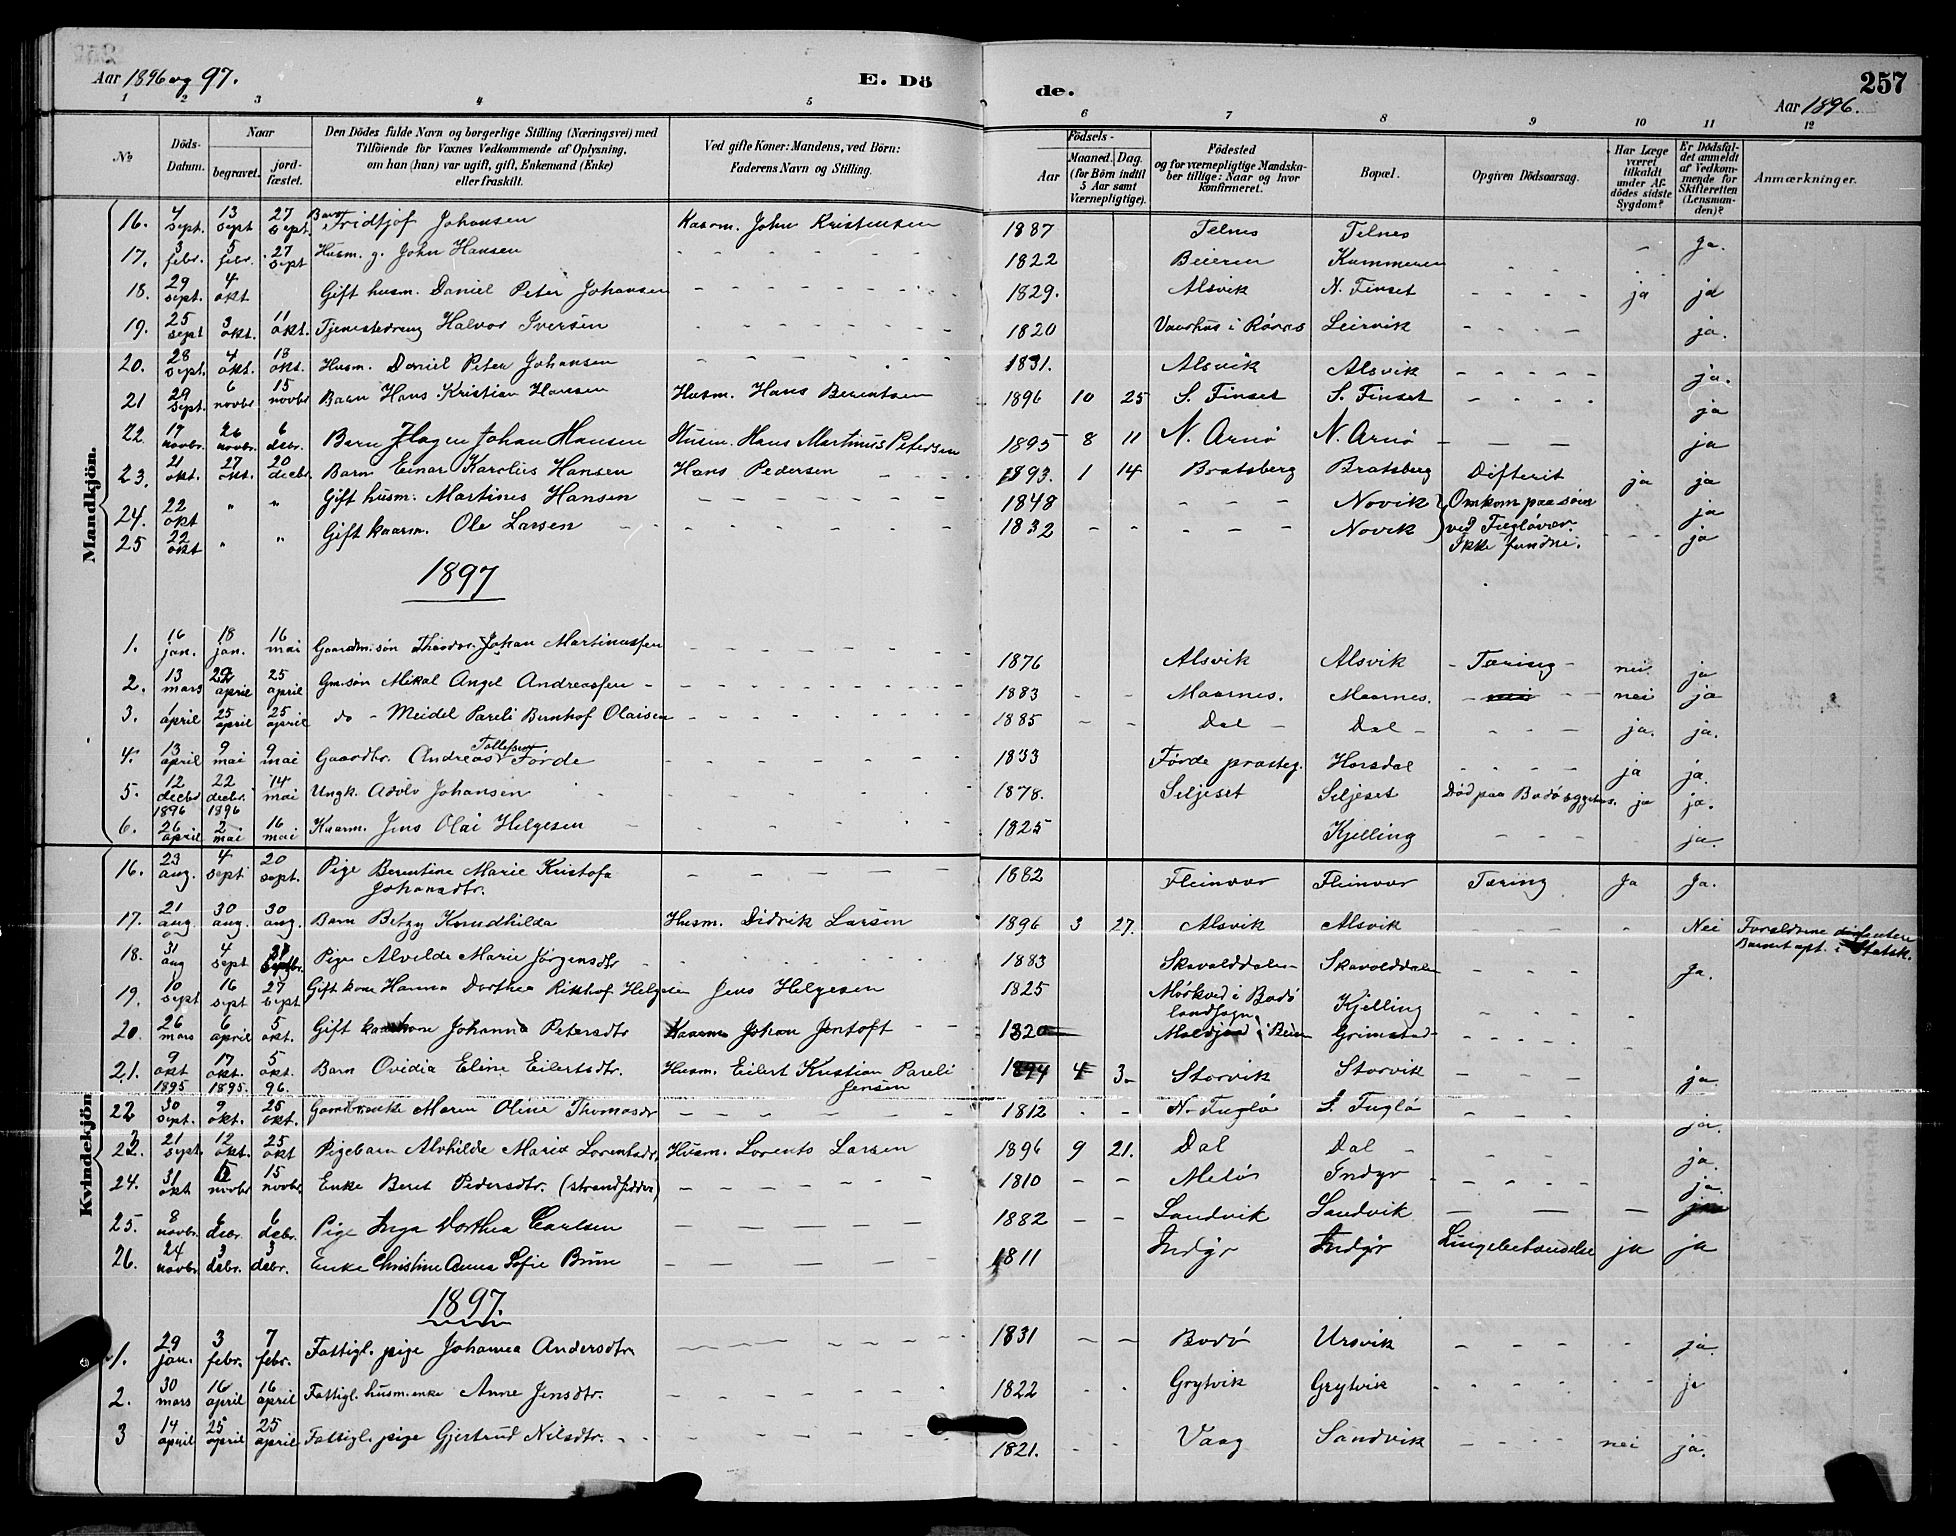 Aar 1896 og 97. E. Dö de. 257
Aar 1896.
1 2 3 4 5 6 7 8 9 10 11 12
No. Döds-Datum. Naar begravet. jordfæstet. Den Dödes fulde Navn og borgerlige Stilling (Næringsvei) med Tilföiende for Voxnes Vedkommende af Oplysning, om han (hun) var ugift, gift, Enkemand (Enke) eller fraskilt. Ved gifte Koner: Mandens, ved Börn: Faderens Navn og Stilling. Födsels- Aar Maaned. Dag. (for Börn indtil 5 Aar samt Værnepligtige). Födested og for værnepligtige Mandskaber tillige: Naar og hvor konfirmeret. Bopæl. Opgiven Dödsaarsag. Har Læge været tilkaldt under Afdödes sidste Sygdom? Er Dödsfaldet anmeldt af Vedkommende for Skifteretten (Lensmanden)? Anmærkninger.
Mandkjön.
16. 4 sept. 13 sept 27 sept. Barn Fridtjof Johansen Kaarm. John Kristensen 1887 Telnes Telnes - Ja.
17. 3 febr. 5 febr. 27 sept Husm. g. John Hansen 1822 Beieren Kammeren
18. 29 sept. 4 okt Gift husm. Daniel Peter Johansen 1829. Alsvik N. Finset ja ja
19. 25 sept 3 okt. 11 okt. Tjenestedreng Halvor Iversen 1820 i Röros Leirvik ja.
20. 28 sept. 4 okt. 18 okt. Husm. Daniel Peter Johansen 1831. Alsvik Alsvik ja.
21 29 sept. 6 novbr 15 novbr Barn Hans Kristian Hansen Husm. Hans Berentsen 1896 10 25 S. Finset S. Finset ja
22. 17 novbr. 26 novbr. 6 debr. Barn Hagen Johan Hansen Husm. Hans Martinus Petersen 1895 8 11 N. Arnö N. Arnö ja
23. 21 okt. 27 okt. 20 decbr. Barn Einar Karolius Hansen Hans Pedersen 1893. 1 14 Bratsberg Bratsberg Difterit ja ja
24. 22 okt " " Gift husm. Martines Hansen 1848 Novik Omkom paa söen ja
25 22 okt " " Gift kaarm. Ole Larsen 1832 Novik ved Fuglövær. Ikke fundne. ja
1897
1. 16 jan. 18 jan. 16 mai Gaardm. sön Theodor Johan Martinussen 1876 Alsvik Alsvik Tæring nei ja
2. 13 mars 22 april 25 april Gm. sön Mikal Angel Andreassen 1883 Maarnes. Maarnes. nei nei ja
3. 1 april 25 april 25 april do - Meidel Pareli Bernhof Olaisen 1885 Dal Dal ja. ja.
4. 13 april 9 mai 9 mai Gaardbr. Andreas Tollefsen Förde 1833 Förde præsteg. Horsdal ja ja.
5. 12 decbr 1896 22 decbr. 1896 14 mai Ungk. Adolv Johansen 1878. Seljeset Seljeset Död paa Bodö sygehus. ja ja.
6. 26 april 2 mai 16 mai Kaarm. Jens Olai Helgesen 1825 Kjelling ja.
Kvindekjön
16. 23 aug. 4 sept 20 sept. Pige Berentine Marie Kristofa Johansdtr. 1882 Fleinvær Fleinvær Tæring Ja Ja.
17. 21 aug. 30 aug. 30 aug. Barn Betzy Knudhilda Husm. Didrik Larsen 1896 3 27. Alsvik Alsvik Nei Forældrene Barnet opt. i Statsk.
18. 31 aug 4 sept Pige Alvilde Marie Jörgensdtr 1883 Skavolddalen Skavolddalen Ja.
19. 10 sept 16 sept 27 sept Gift kone Hanna Dorthea Rikhof Helgesen Jens Helgesen 1825 Mörkved i Bodö landsogn. Kjelling
20. 26 mars 6 april 5 okt. Gift kone Johanna Petersdtr Kaarm Johan Jentoft 1820 Moldjord i Beieren Grimstad
21. 9 okt 1895 17 okt. 1895. 5 okt. 96. Barn Ovidia Eline Eilertsdtr. Husm. Eilert Kristian Pareli Jensen 1894 4 3 Storvik Storvik ja
22 30 sept. 9 okt. 25 okt. Gaardbr. enke Maren Oline Thomasdr 1812 N. Fuglö S. Fuglö ja.
23. 21 sept. 12 okt. 25 okt Pigebarn Alvhilde Marie Lorentsdr. Husm. Lorents Larsen 1896 9 21. Dal Dal ja.
24. 31 okt novbr 15 novbr. Enke Beret Pedersdtr. (strandsidder) 1810 Melöi Indyr ja.
25. 8 novbr. 6 decr. 6 debr. Pige Inga Dorthea Carlsen 1882 Sandvik Sandvik ja
26. 24 novbr 3 debr. 3 debr. Enke Christine Anna Sofie Bruun 1811 Indyr Indyr Lungebetændelse ja ja
1897.
1. 29 jan. 3 febr. 7 febr. Fattigl. pige Johanna Andersdtr. 1831 Bodö Ursvik ja.
2. 30 mars 16 april 16 april Fattigl. husm. enke Anne Jensdtr. 1822 Grytvik Grytvik ja
3 14 april 25 april 25 april Fattigl. pige Gjertrud Nilsdtr. 1821. Vaag Sandvik nei ja.